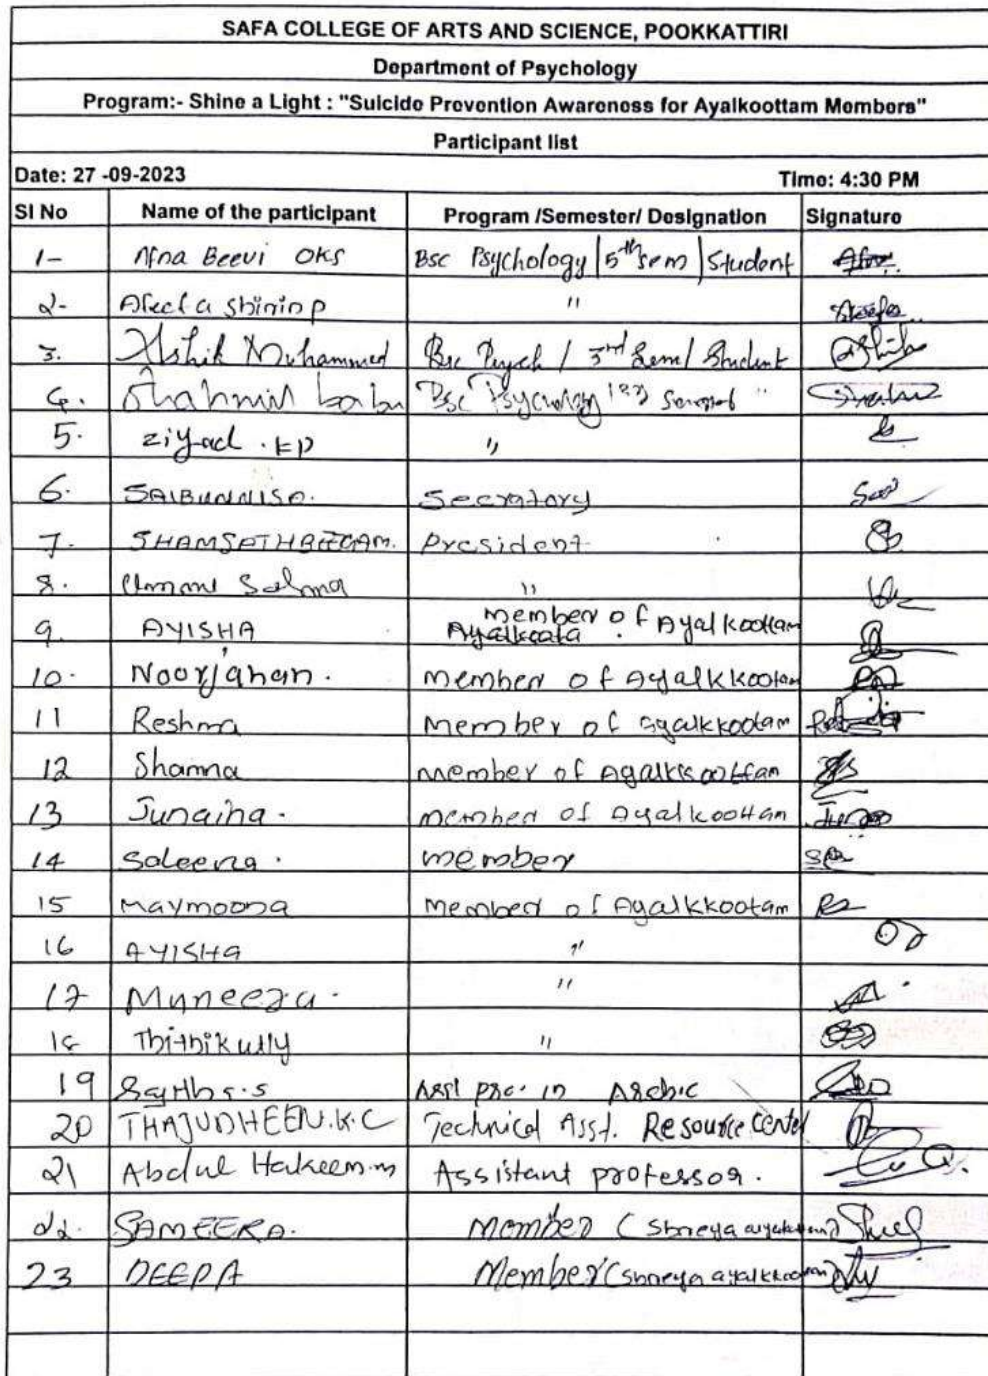 SAFA COLLEGE OF ARTS AND SCIENCE, POOKKATTIRI
Department of Psychology
Program:- Shine a Light : "Suicide Prevention Awareness for Ayalkoottam Members"
Participant list
Date: 27 -09-2023 Time: 4:30 PM
Sl No Name of the participant Program /Semester/ Designation Signature
1- Afna Beevi OKS Bsc Psychology | 5th sem | Student
2- shirin p "
3. Ashik Muhammed Bsc Psych / 3rd Sem / Student Ashik
4. Shahmil babu Bsc Psychology "
5. ziyad . EP "
6. SAIBUNNISA. Secratory
7. SHAMSATHBEEGAM. President
8. Umme Salma "
9. AYISHA Ayalkoota member of Ayalkoottam
10. Noorjahan. member of Ayalkkootam
11 Reshma Member of ayalkkootam
12 Shamna member of Ayalkkoottam
13 Junaina. member of Ayalkoottam
14 Saleena. member
15 Maymoona Member of Ayalkkootam
16 AYISHA "
17 Muneera. "
18 Thithikutty "
19 Asst in Arabic
20 THAJUDHEEN.K.C Technical Asst. Resource Center
21 Abdul Hakeem.m Assistant professor.
22. SAMEERA. Member (Shreya
23 DEEPA Member (shreya ayalkkootam)